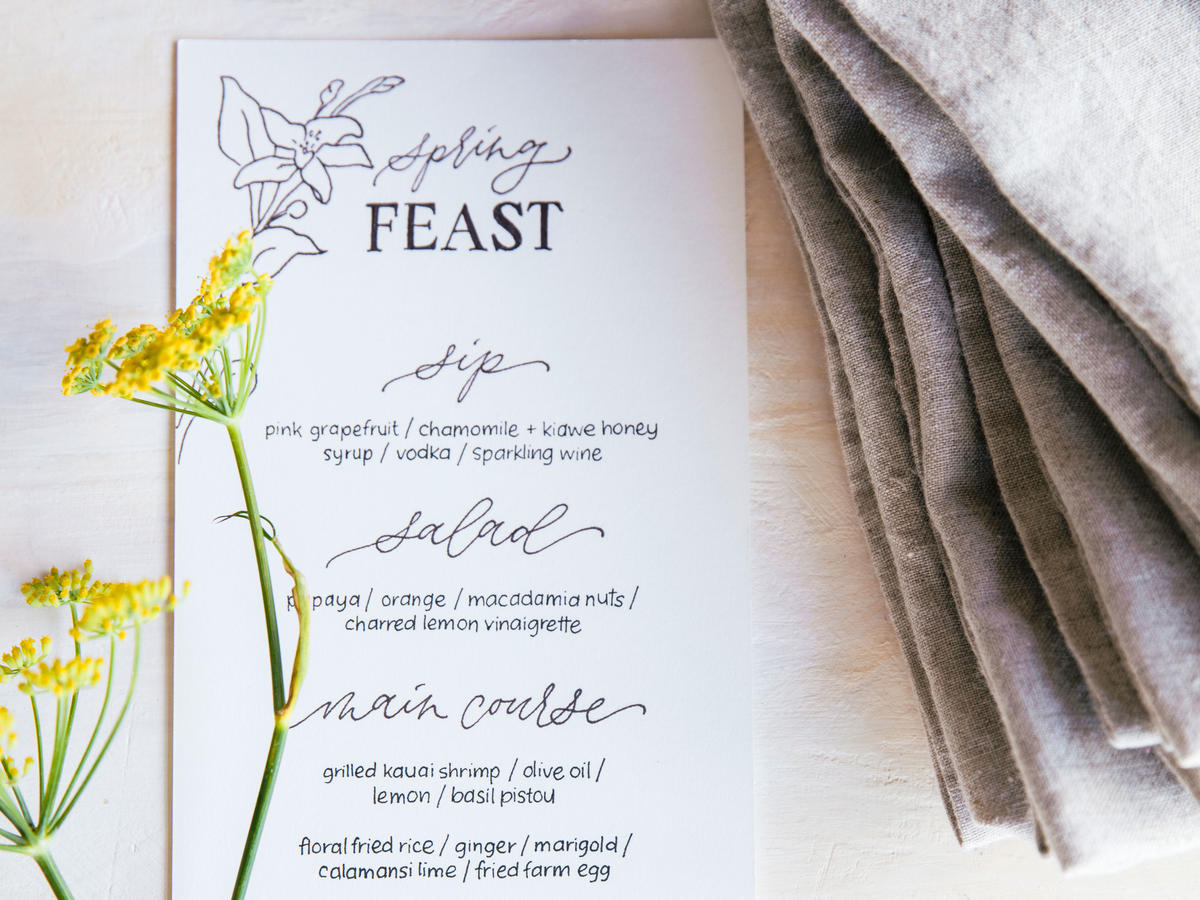 spring
FEAST
sip
pink grapefruit / chamomile + kiawe honey
syrup / vodka / sparkling wine
salad
papaya / orange / macadamia nuts /
charred lemon vinaigrette
main course
grilled kauai shrimp / olive oil /
lemon / basil pistou
floral fried rice / ginger / marigold /
calamansi lime / fried farm egg